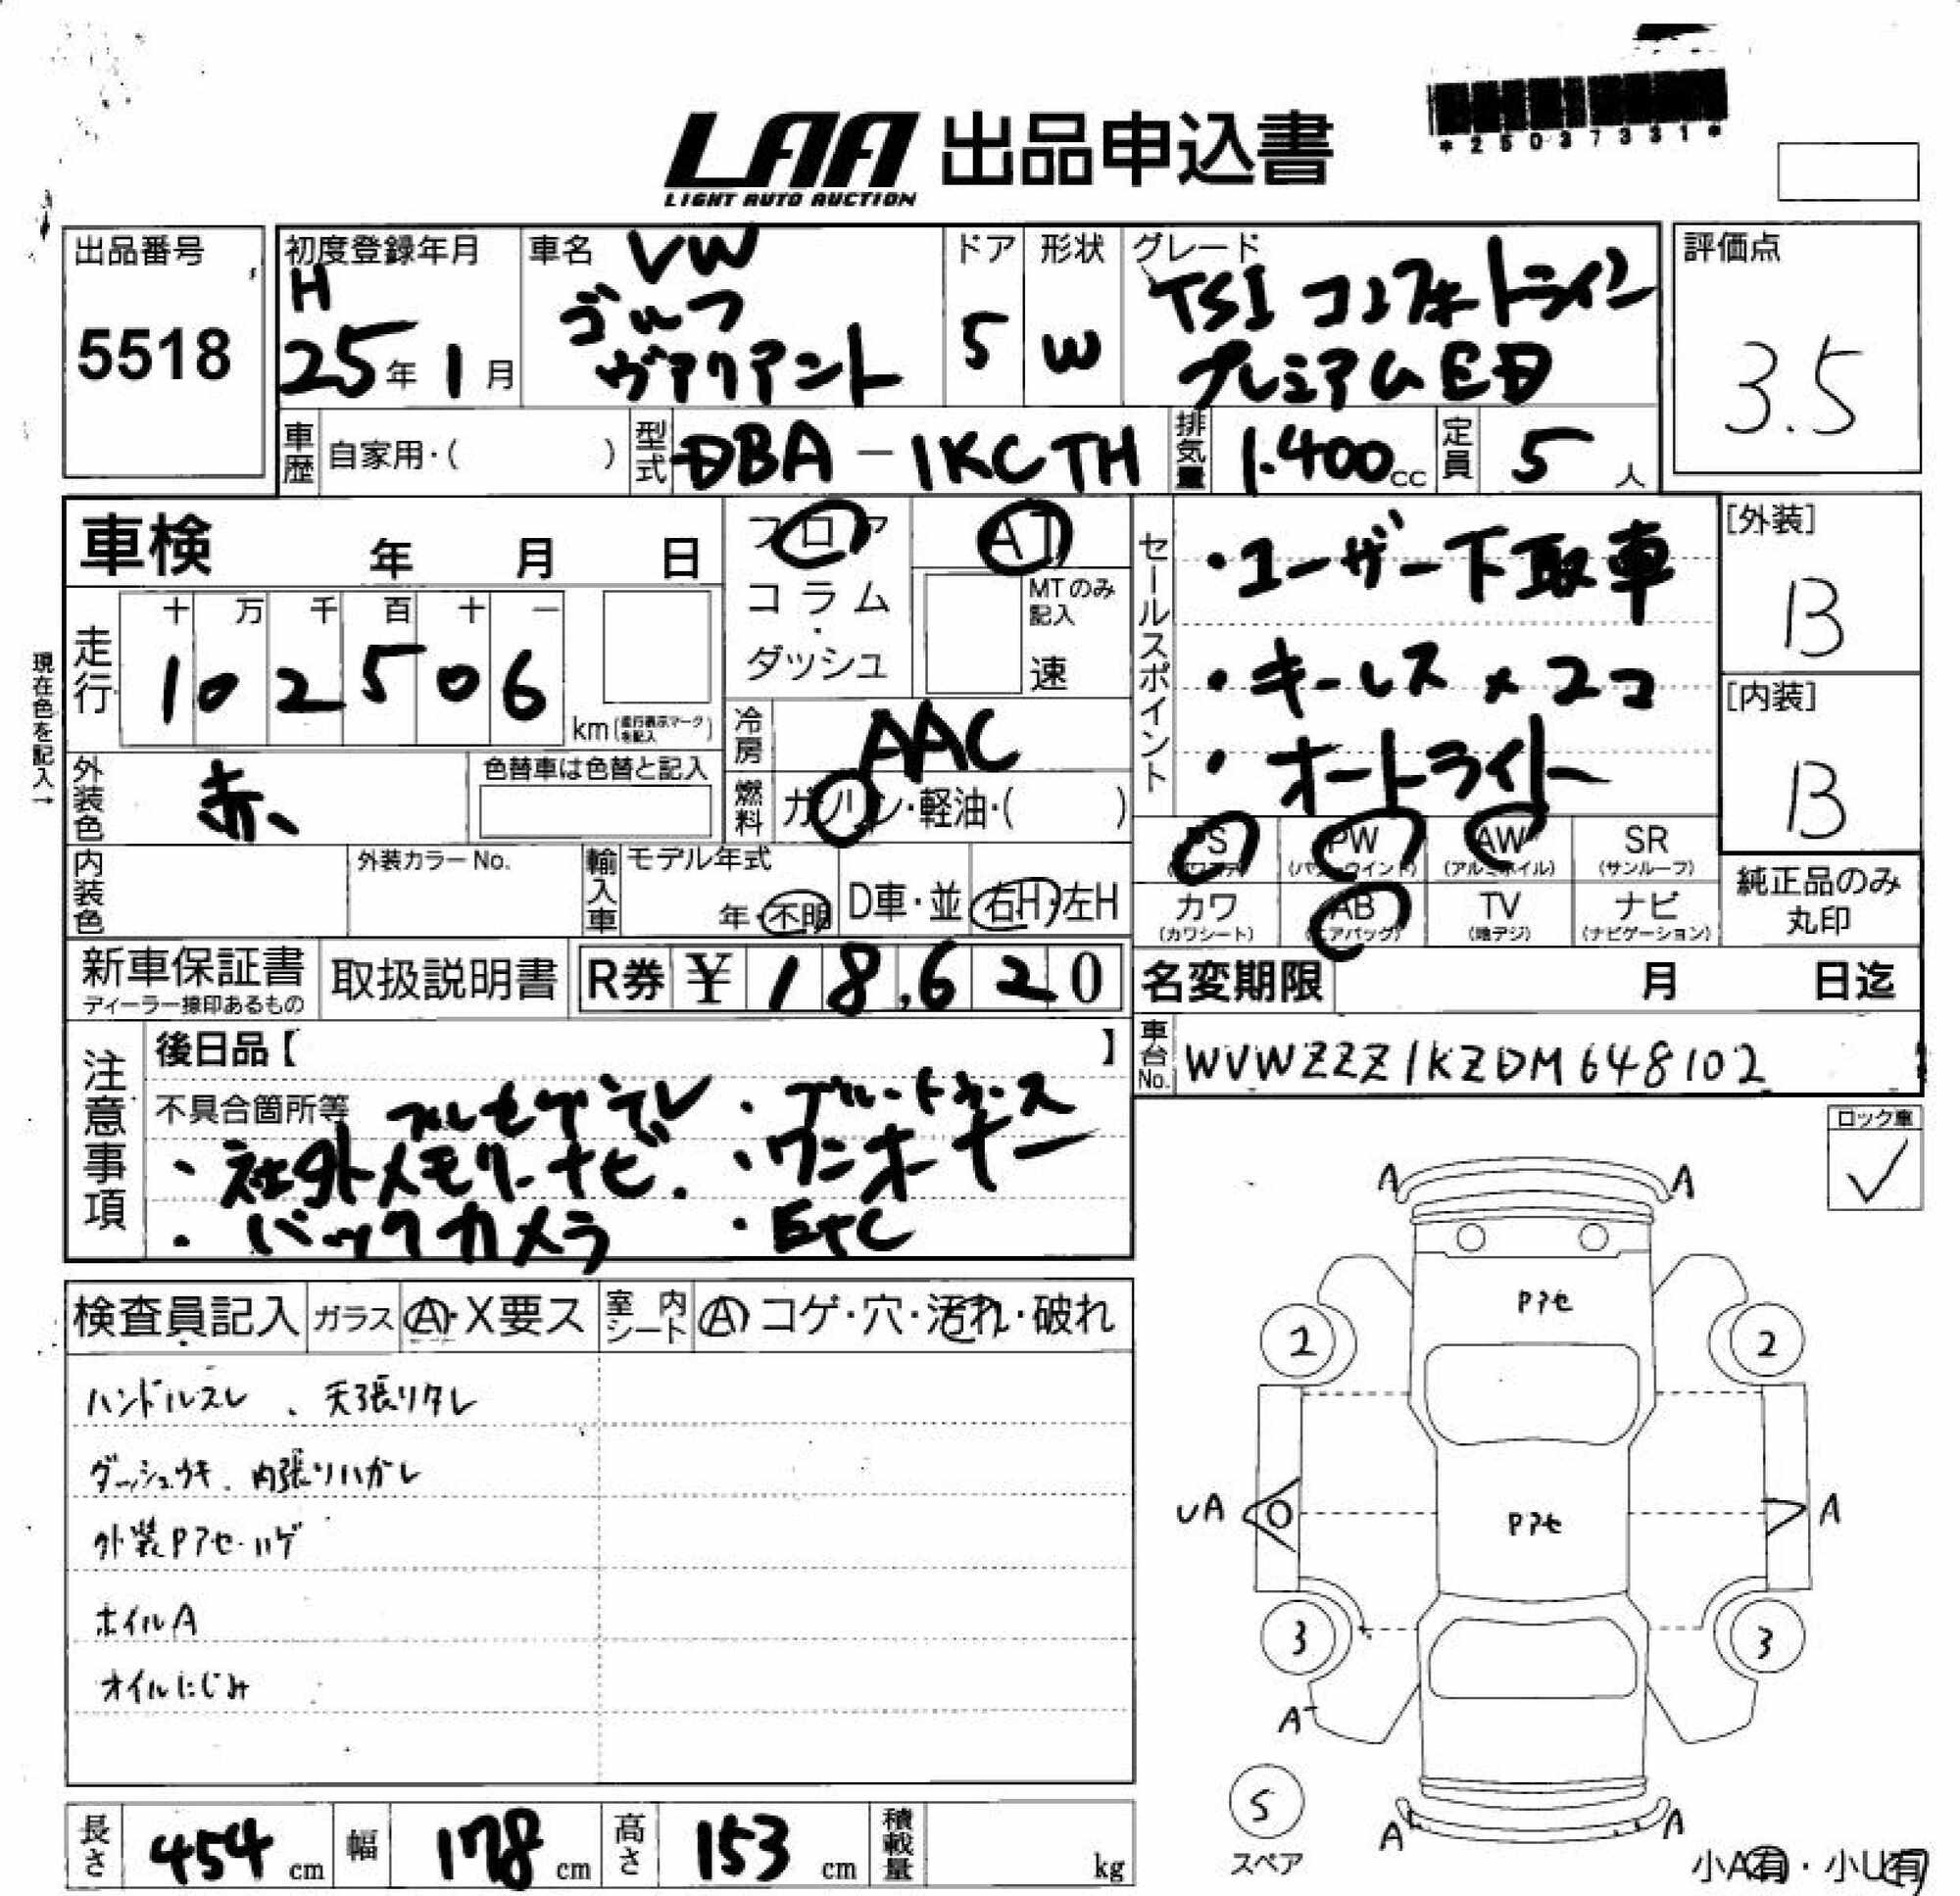 *25037331*
LAA 出品申込書
LIGHT AUTO AUCTION
出品番号
5518
初度登録年月
H
25年 1月
車名 VW
ゴルフ
ヴァリアント
ドア
5
形状
W
グレード
TSI コンフォートライン
プレミアムED
評価点
3.5
車歴 自家用・( )
型式 DBA-1KCTH
排気量 1.400cc
定員 5人
車検 年 月 日
フロア
コラム
・
ダッシュ
AT
MTのみ
記入
速
セールスポイント
・ユーザー下取車
・キーレス×2コ
・オートライト
[外装]
B
[内装]
B
現在色を記入→
走行
十 万 千 百 十 一
1 0 2 5 0 6
km(走行表示マークを記入)
冷房 AAC
燃料 ガソリン・軽油・( )
外装色 赤
色替車は色替と記入
内装色
外装カラーNo.
輸入車
モデル年式
年・不明
D車・並
右H・左H
PS
(パワステ)
PW
(パワーウインド)
AW
(アルミホイル)
SR
(サンルーフ)
カワ
(カワシート)
AB
(エアバッグ)
TV
(地デジ)
ナビ
(ナビゲーション)
純正品のみ
丸印
新車保証書
ディーラー捺印あるもの
取扱説明書
R券 ¥ 18,620
名変期限 月 日迄
車台No. WVWZZZ1KZDM648102
注意事項
後日品【 】
不具合箇所等 フルセグテレビ ・ブルートゥース
・社外メモリーナビ ・ワンオーナー
・バックカメラ ・ETC
ロック車
✓
検査員記入
ガラス A・X要ス
室内シート A コゲ・穴・汚れ・破れ
ハンドルスレ、天張りタレ
ダッシュウキ、内張りハガレ
外装Pアセ・ハゲ
ホイルA
オイルにじみ
A A
Pアセ
2 2
UA A
Pアセ
3 3
A
S
スペア
A A
小A有・小U有
長さ 454 cm
幅 178 cm
高さ 153 cm
積載量 kg